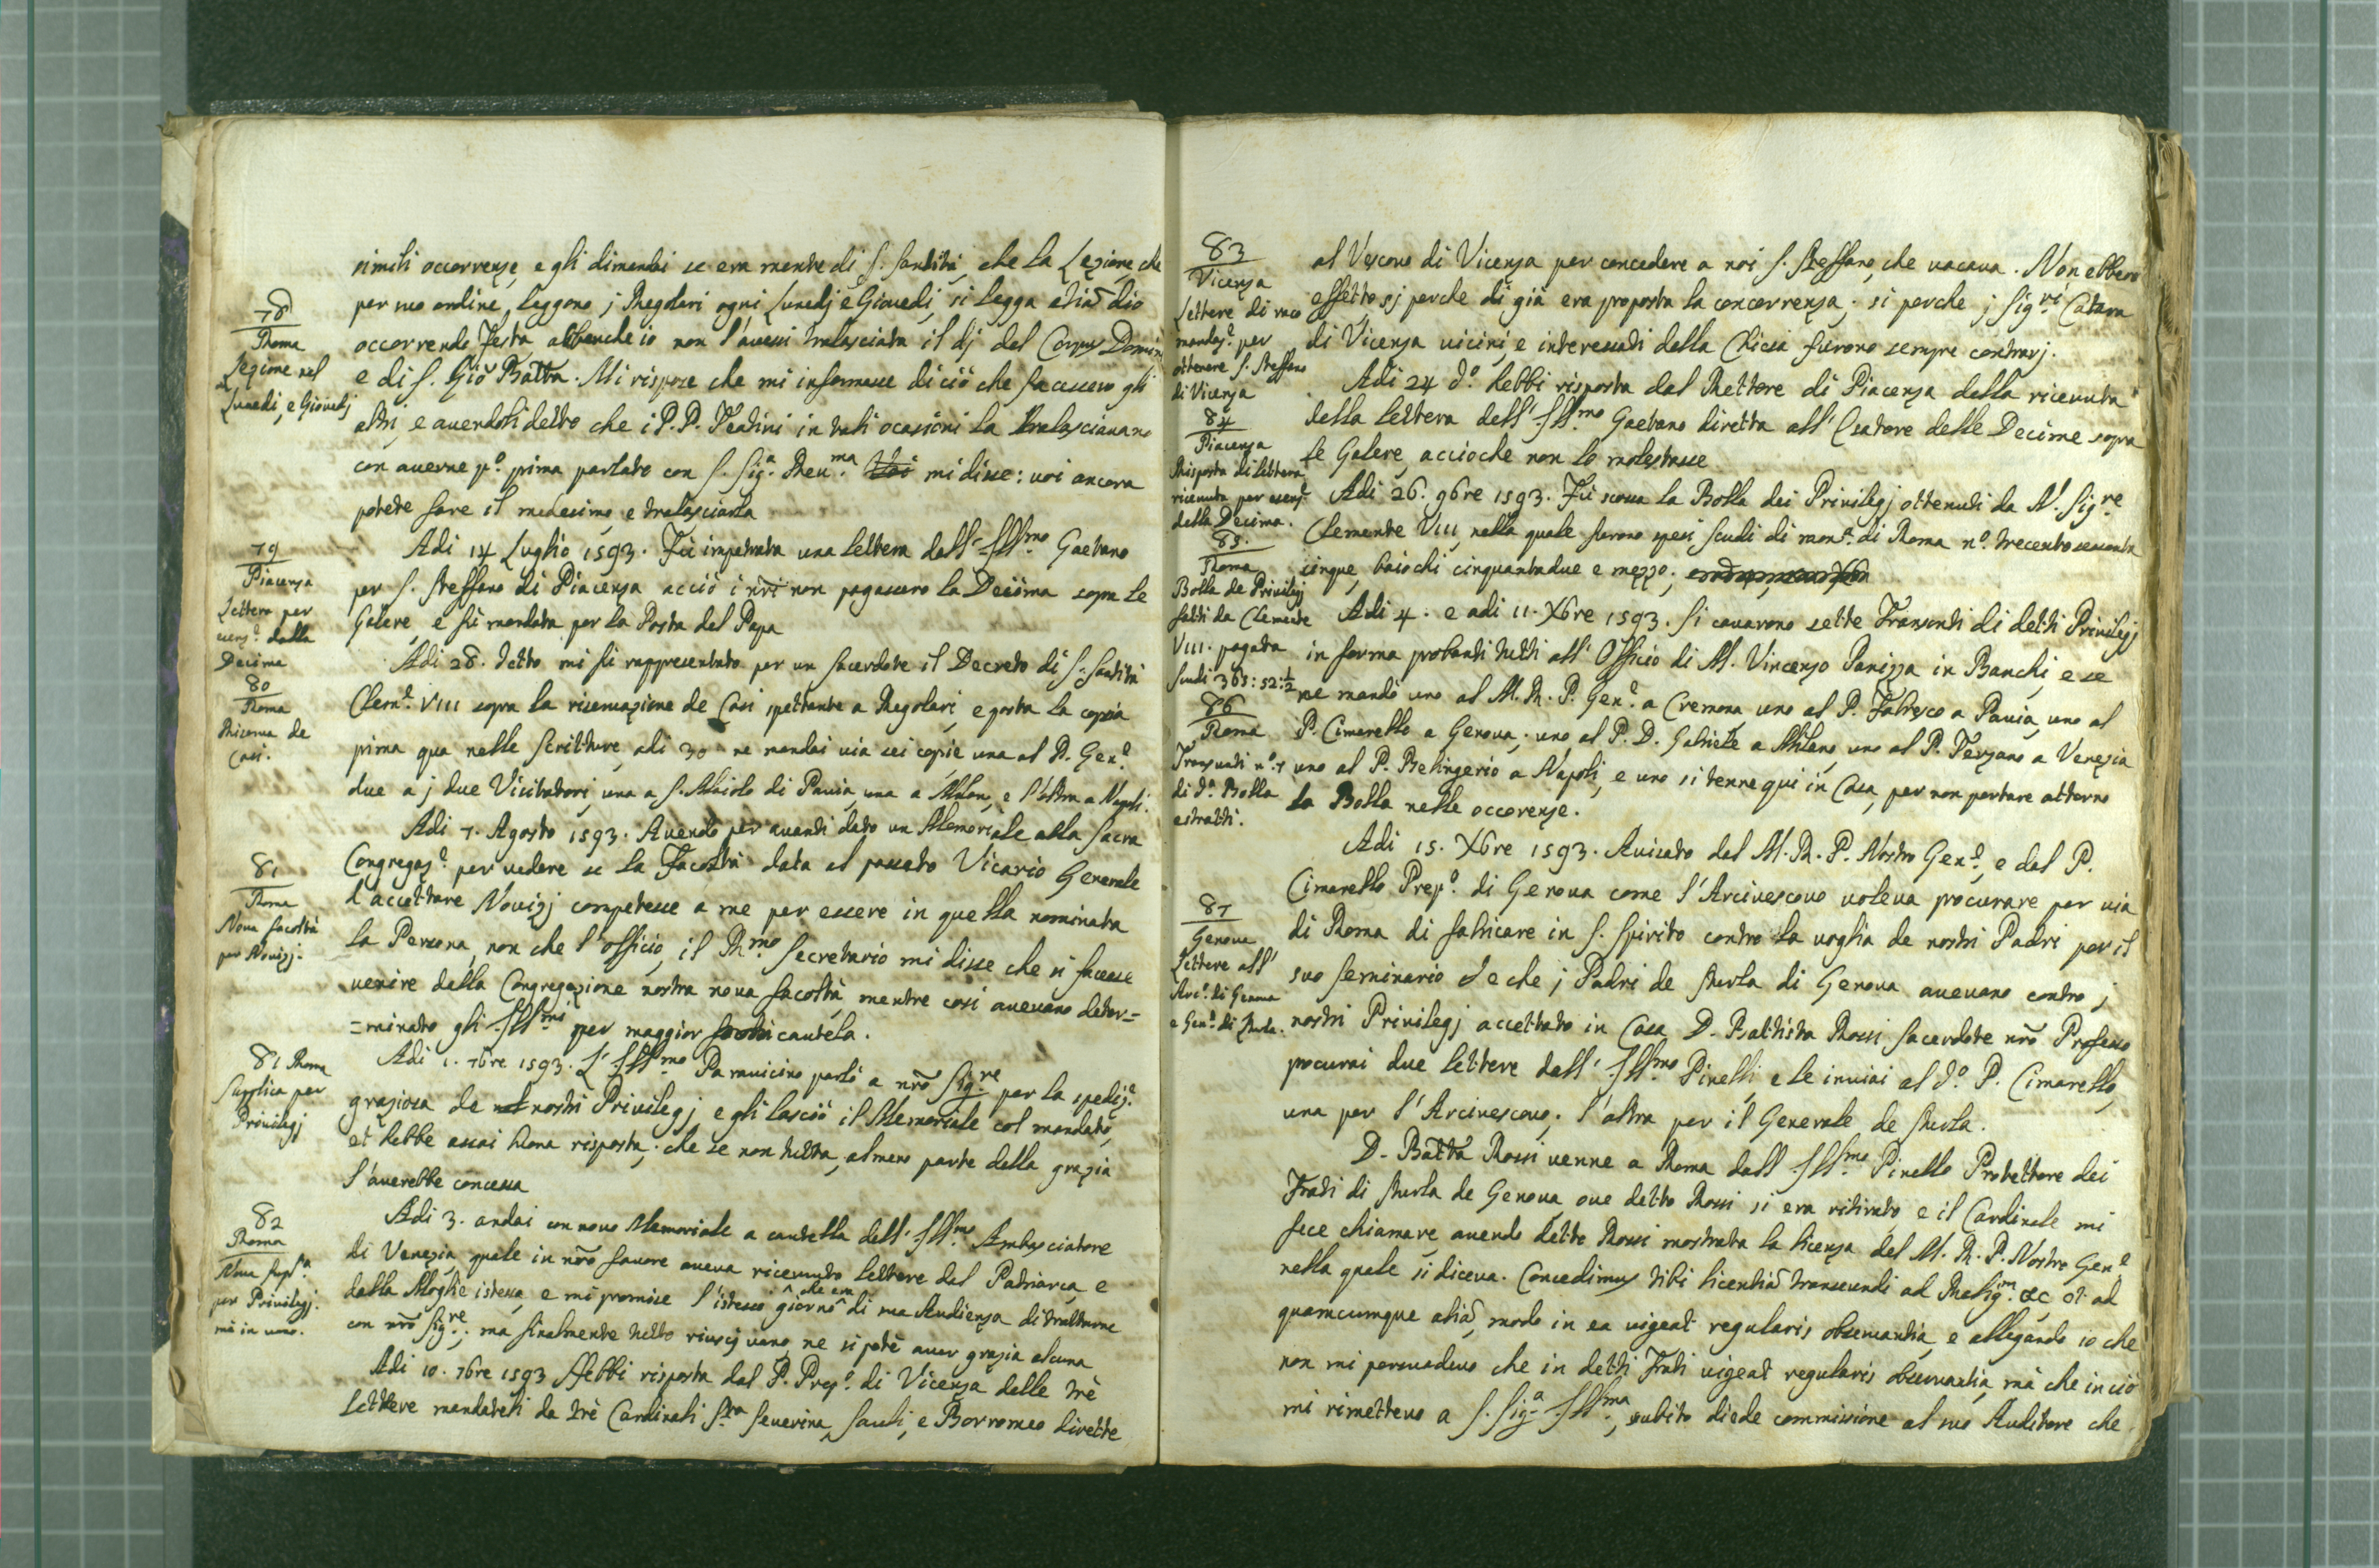 simili occorrenze, e gli dimandai se era mente di S. Santità, che la Lezione che
78
Roma
Lezione nel
Lunedi, e Giovedj
per suo ordine, leggono j Regolari ogni Lunedj e Giovedi, si legga etiã dio
occorrendo Festa abbenche io non l'avessi tralasciata il dj del Corpus Domini
e di S. Giõ Batta. Mi rispose che mi informasse di ciò che facessero gli
altri, e avendoli detto che i P.P. Teatini in tali ocasioni la tralasciavano
con averne pº. prima parlato con S. Sigª. Reuma. Voi mi disse: voi ancora
potete fare il medesimo, e tralasciarla
79
Piacenza
Lettera per
esenzº. dalla
Decima
Adi 14 Luglio 1593. Fù impetrata una lettera dall'Illmo. Gaetano
per S. Steffano di Piacenza acciò i nři non pagassero la Decima sopra le
Galere, e fù mandata per la Posta del Papa
80
Roma
Riserva de
Casi.
Adi 28. detto mi fù rappresentato per un Sacerdote il Decreto di S. Santità
Clemº. VIII sopra la riservazione de Casi spettante a Regolari, e posta la copia
prima qua nelle scritture, adi 30 ne mandai via sei copie una al P. Genº.
due a j due Visitatori, una a S. Maiolo di Pavia, una a Milan, e l'altra a Napoli.
81
Roma
Nova facoltà
per Novizj.
Adi 7. Agosto 1593. Avendo per avanti dato un Memoriale alla Sacra
Congregazº. per vedere se la Facoltà data al passato Vicario Generale
d'accettare Novizj competesse a me per essere in quella nominata
la Persona, non che l'officio, il Rmo. Secretario mi disse che si facesse
venire dalla Congregazione nostra nova facoltà, mentre così avevano deter=
=minato gli Illmi. per maggior cautela.
81 Roma
Supplica per
Privilegj
Adi 1. 7bre 1593. L'Illmo. Paravicino parlò a nrõ Sigre. per la spedizº.
graziosa de nostri Privilegj e gli lasciò il Memoriale col mandato,
et hebbe assai bona risposta; che se non tutta, almeno parte della grazia
l'averebbe concessa
82
Roma
Nova supla.
per Privilegj.
mà in vano.
Adi 3. andai con novo Memoriale a cautella dell'Illmo. Ambasciatore
di Venezia, quale in nrõ favore aveva ricevuto lettere dal Patriarca, e
dalla Moglie istessa, e mi promise l'istesso giorno che era di sua Audienza di trattarne
con nrõ Sigre.; ma finalmente tutto riuscj vano, ne si potè aver grazia alcuna
Adi 10. 7bre 1593 Hebbi risposta dal P. Prepº. di Vicenza delle trè
lettere mandateli da trè Cardinali Sta. Severina, Sauli, e Borromeo dirette
83
Vicenza
Lettere di raco
mandazº. per
ottenere S. Steffano
di Vicenza
al Vescovo di Vicenza per concedere a noi S. Steffano, che vacava. Non ebbero
effetto sj perche di già era proposta la concorrenza; si perche j Sigri.
di Vicenza vicini, e interessati della Chiesa furono sempre contrarj.
84
Piacenza
Risposta di lettera
ricevuta per esenzº.
della Decima.
Adi 24 dº. hebbi risposta dal Rettore di Piacenza della ricevuta
della lettera dell'Illmo Gaetano diretta all'Esatore delle Decime sopra
le Galere, accioche non lo molestasse
85.
Roma
Bolla de Privilegj
fatti da Clemente
VIII. pagata
scudi 365:52:½
Adi 26. 9bre 1593. Fù scossa la Bolla dei Privilegj ottenuti da N. Sigre
Clemente VIII, nella quale furono spesi scudi di monª. di Roma nº. trecento sessanta
cinque, baiochi cinquantadue e mezzo;
86
Roma
Transunti nº. 7
di dª. Bolla
estratti.
Adi 4. e adi 11. Xbre 1593. Si cavarono sette Transunti di detti Privilegj
in forma probanti tutti all'Officio di M. Vincenzo Panizza in Banchi, e se
ne mandò uno al M. R. P. Genº. a Cremona, uno al P. Fabresco a Pavia, uno al
P. Cimarello a Genova; uno al P. D. Gabriele a Milano, uno al P. Terzano a Venezia
uno al P. Belingerio a Napoli, e uno si tenne qui in Casa, per non portare attorno
la Bolla nelle occorenze.
87
Genova
Lettere all'
Arcº. di Genova
e Genº. di
Adi 15. Xbre 1593. Avisato dal M. R. P. Nostro Genº., e dal P.
Cimarello Prepº. di Genova come l'Arcivescovo voleva procurare per via
di Roma di fabricare in S. Spirito contro la voglia de nostri Padri per il
suo Seminario, e che j Padri de di Genova avevano contro j
nostri Privilegj accettato in Casa D. Battista Rossi Sacerdote nrõ Professo
procurai due lettere dall'Illmo. Pinelli, e le inviai al dº. P. Cimarello,
una per l'Arcivescovo; l'altra per il Generale de
D. Batta Rossi venne a Roma dall Illmo. Pinello Protettore dei
Frati di de Genova, ove detto Rossi si era ritirato, e il Cardinale mi
fece chiamare, avendo detto Rossi mostrata la licenza del M. R. P. Nostro Genº
nella quale si diceva. Concedimus tibi licentiã transeundi ad Religm. &c et ad
quamcumque aliã, modo in ea vigeat regularis observantia, e allegando io che
non mi persuadevo che in detti Frati vigeat regularis observantia, mà che in ciò
mi rimettevo a S. Sigª. Illma., subito diede commissione al suo Auditore che